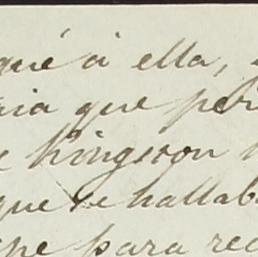 qué á ella,
que per
Kingston
que se hallab
para rec